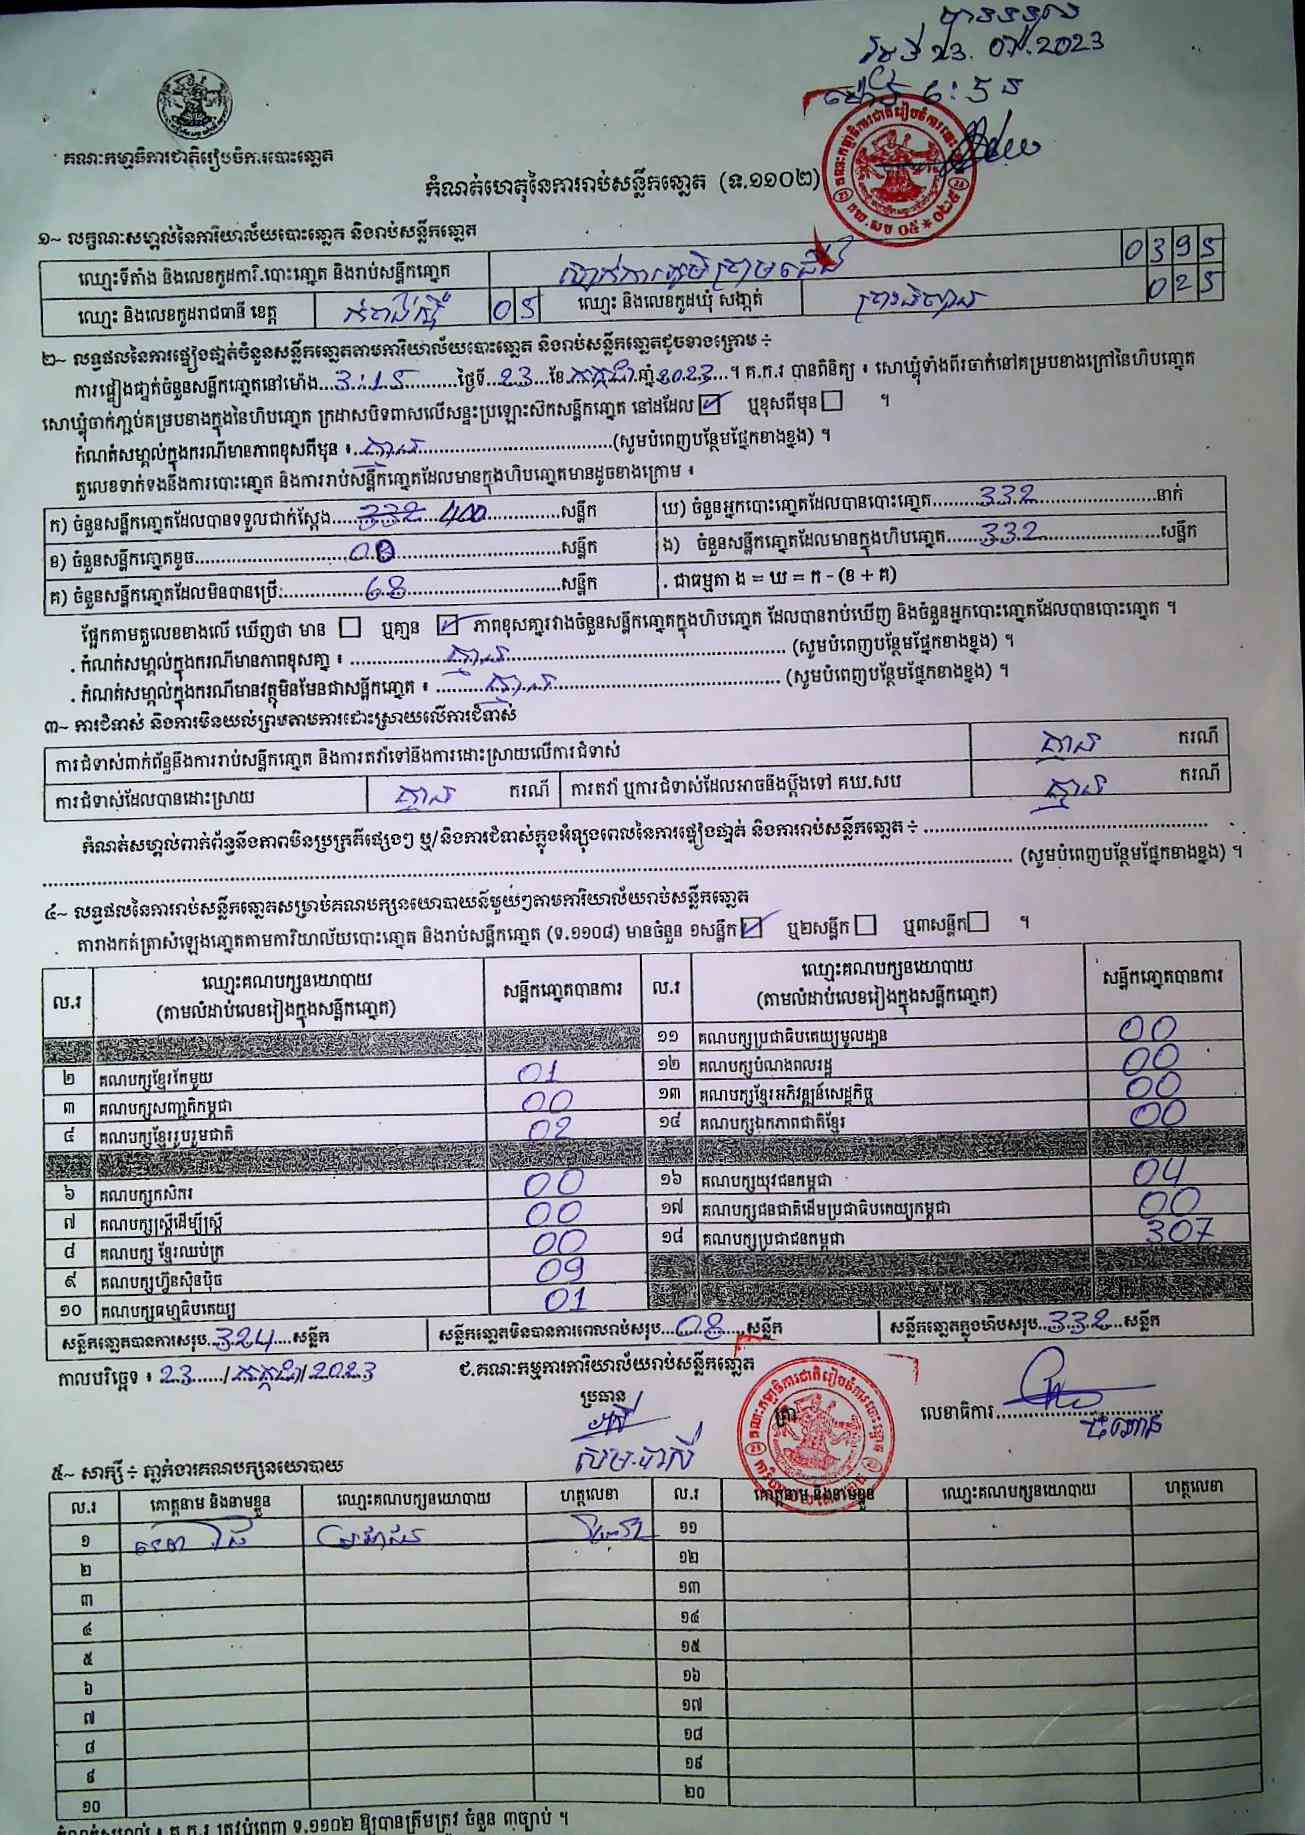 បានទទួល
ថ្ងៃទី 23. 07. 2023
ម៉ោង ៦:៦ ន
គណៈកម្មាធិការជាតិរៀបចំការបោះឆ្នោត
កំណត់ហេតុនៃការរាប់សន្លឹកឆ្នោត (ទ.១១០២)
១~ លក្ខណៈសម្គាល់នៃការិយាល័យបោះឆ្នោត និងរាប់សន្លឹកឆ្នោត
ឈ្មោះទីតាំង និងលេខកូដការិ.បោះឆ្នោត និងរាប់សន្លឹកឆ្នោត 0395
ឈ្មោះ និងលេខកូដរាជធានី ខេត្ត កំពង់ស្ពឺ 05 ឈ្មោះ និងលេខកូដឃុំ សង្កាត់ 025
២~ លទ្ធផលនៃការផ្ទៀងផ្ទាត់ចំនួនសន្លឹកឆ្នោតតាមការិយាល័យបោះឆ្នោត និងរាប់សន្លឹកឆ្នោតដូចខាងក្រោម ÷
ការផ្ទៀងផ្ទាត់ចំនួនសន្លឹកឆ្នោតនៅម៉ោង...3:15...ថ្ងៃទី...23...ខែ.កក្កដា.ឆ្នាំ2023...។ គ.ក.រ បានពិនិត្យ ៖ សោឃ្លុំទាំងពីរចាក់នៅគម្របខាងក្រៅនៃហិបឆ្នោត
សោឃ្លុំចាក់ភ្ជាប់គម្របខាងក្នុងនៃហិបឆ្នោត ក្រដាសបិទពាសលើសន្ទះប្រឡោះស៊កសន្លឹកឆ្នោត នៅដដែល ☑ ឬខុសពីមុន ☐ ។
កំណត់សម្គាល់ក្នុងករណីមានភាពខុសពីមុន ៖...គ្មាន...(សូមបំពេញបន្ថែមផ្នែកខាងខ្នង) ។
តួលេខទាក់ទងនឹងការបោះឆ្នោត និងការរាប់សន្លឹកឆ្នោតដែលមានក្នុងហិបឆ្នោតមានដូចខាងក្រោម ៖
ក) ចំនួនសន្លឹកឆ្នោតដែលបានទទួលជាក់ស្តែង...332...400...សន្លឹក ឃ) ចំនួនអ្នកបោះឆ្នោតដែលបានបោះឆ្នោត...332...នាក់
ខ) ចំនួនសន្លឹកឆ្នោតខូច...00...សន្លឹក ង) ចំនួនសន្លឹកឆ្នោតដែលមានក្នុងហិបឆ្នោត...332...សន្លឹក
គ) ចំនួនសន្លឹកឆ្នោតដែលមិនបានប្រើ:...68...សន្លឹក . ជាធម្មតា ង = ឃ = ក - (ខ + គ)
ផ្អែកតាមតួលេខខាងលើ ឃើញថា មាន ☐ ឬគ្មាន ☑ ភាពខុសគ្នារវាងចំនួនសន្លឹកឆ្នោតក្នុងហិបឆ្នោត ដែលបានរាប់ឃើញ និងចំនួនអ្នកបោះឆ្នោតដែលបានបោះឆ្នោត ។
. កំណត់សម្គាល់ក្នុងករណីមានភាពខុសគ្នា ៖ ...គ្មាន... (សូមបំពេញបន្ថែមផ្នែកខាងខ្នង) ។
. កំណត់សម្គាល់ក្នុងករណីមានវត្ថុមិនមែនជាសន្លឹកឆ្នោត ៖ ...គ្មាន... (សូមបំពេញបន្ថែមផ្នែកខាងខ្នង) ។
៣~ ការជំទាស់ និងការមិនយល់ព្រមតាមការដោះស្រាយលើការជំទាស់
ការជំទាស់ពាក់ព័ន្ធនឹងការរាប់សន្លឹកឆ្នោត និងការតវ៉ាទៅនឹងការដោះស្រាយលើការជំទាស់ គ្មាន ករណី
ការជំទាស់ដែលបានដោះស្រាយ គ្មាន ករណី ការតវ៉ា ឬការជំទាស់ដែលអាចនឹងប្តឹងទៅ គឃ.សប គ្មាន ករណី
កំណត់សម្គាល់ពាក់ព័ន្ធនឹងភាពមិនប្រក្រតីផ្សេងៗ ឬ/និងការជំទាស់ក្នុងអំឡុងពេលនៃការផ្ទៀងផ្ទាត់ និងការរាប់សន្លឹកឆ្នោត ÷ ...
... (សូមបំពេញបន្ថែមផ្នែកខាងខ្នង) ។
៤~ លទ្ធផលនៃការរាប់សន្លឹកឆ្នោតសម្រាប់គណបក្សនយោបាយនីមួយៗតាមការិយាល័យរាប់សន្លឹកឆ្នោត
តារាងកត់ត្រាសំឡេងឆ្នោតតាមការិយាល័យបោះឆ្នោត និងរាប់សន្លឹកឆ្នោត (ទ.១១០៨) មានចំនួន ១សន្លឹក ☑ ឬ២សន្លឹក ☐ ឬ៣សន្លឹក ☐ ។
ល.រ ឈ្មោះគណបក្សនយោបាយ (តាមលំដាប់លេខរៀងក្នុងសន្លឹកឆ្នោត) សន្លឹកឆ្នោតបានការ ល.រ ឈ្មោះគណបក្សនយោបាយ (តាមលំដាប់លេខរៀងក្នុងសន្លឹកឆ្នោត) សន្លឹកឆ្នោតបានការ
១១ គណបក្សប្រជាធិបតេយ្យមូលដ្ឋាន 00
២ គណបក្សខ្មែរតែមួយ 01 ១២ គណបក្សបំណងពលរដ្ឋ 00
៣ គណបក្សសញ្ជាតិកម្ពុជា 00 ១៣ គណបក្សខ្មែរអភិវឌ្ឍន៍សេដ្ឋកិច្ច 00
៤ គណបក្សខ្មែររួបរួមជាតិ 02 ១៤ គណបក្សឯកភាពជាតិខ្មែរ 00
៦ គណបក្សកសិករ 00 ១៦ គណបក្សយុវជនកម្ពុជា 04
៧ គណបក្សស្ត្រីដើម្បីស្ត្រី 00 ១៧ គណបក្សជនជាតិដើមប្រជាធិបតេយ្យកម្ពុជា 00
៨ គណបក្ស ខ្មែរឈប់ក្រ 00 ១៨ គណបក្សប្រជាជនកម្ពុជា 307
៩ គណបក្សហ៊្វុនស៊ិនប៉ិច 09
១០ គណបក្សធម្មាធិបតេយ្យ 01
សន្លឹកឆ្នោតបានការសរុប...324...សន្លឹក សន្លឹកឆ្នោតមិនបានការពេលរាប់សរុប...08...សន្លឹក សន្លឹកឆ្នោតក្នុងហិបសរុប...332...សន្លឹក
កាលបរិច្ឆេទ ៖ 23....../កក្កដា/2023 ជ.គណៈកម្មការការិយាល័យរាប់សន្លឹកឆ្នោត
ប្រធាន ត្រា លេខាធិការ
៥~ សាក្សី ÷ ភ្នាក់ងារគណបក្សនយោបាយ
ល.រ គោត្តនាម និងនាមខ្លួន ឈ្មោះគណបក្សនយោបាយ ហត្ថលេខា ល.រ គោត្តនាម និងនាមខ្លួន ឈ្មោះគណបក្សនយោបាយ ហត្ថលេខា
១ ប្រជាជន ១១
២ ១២
៣ ១៣
៤ ១៤
៥ ១៥
៦ ១៦
៧ ១៧
៨ ១៨
៩ ១៩
១០ ២០
កំណត់សម្គាល់ : គ.ក.រ ត្រូវបំពេញ ទ.១១០២ ឱ្យបានត្រឹមត្រូវ ចំនួន ៣ច្បាប់ ។